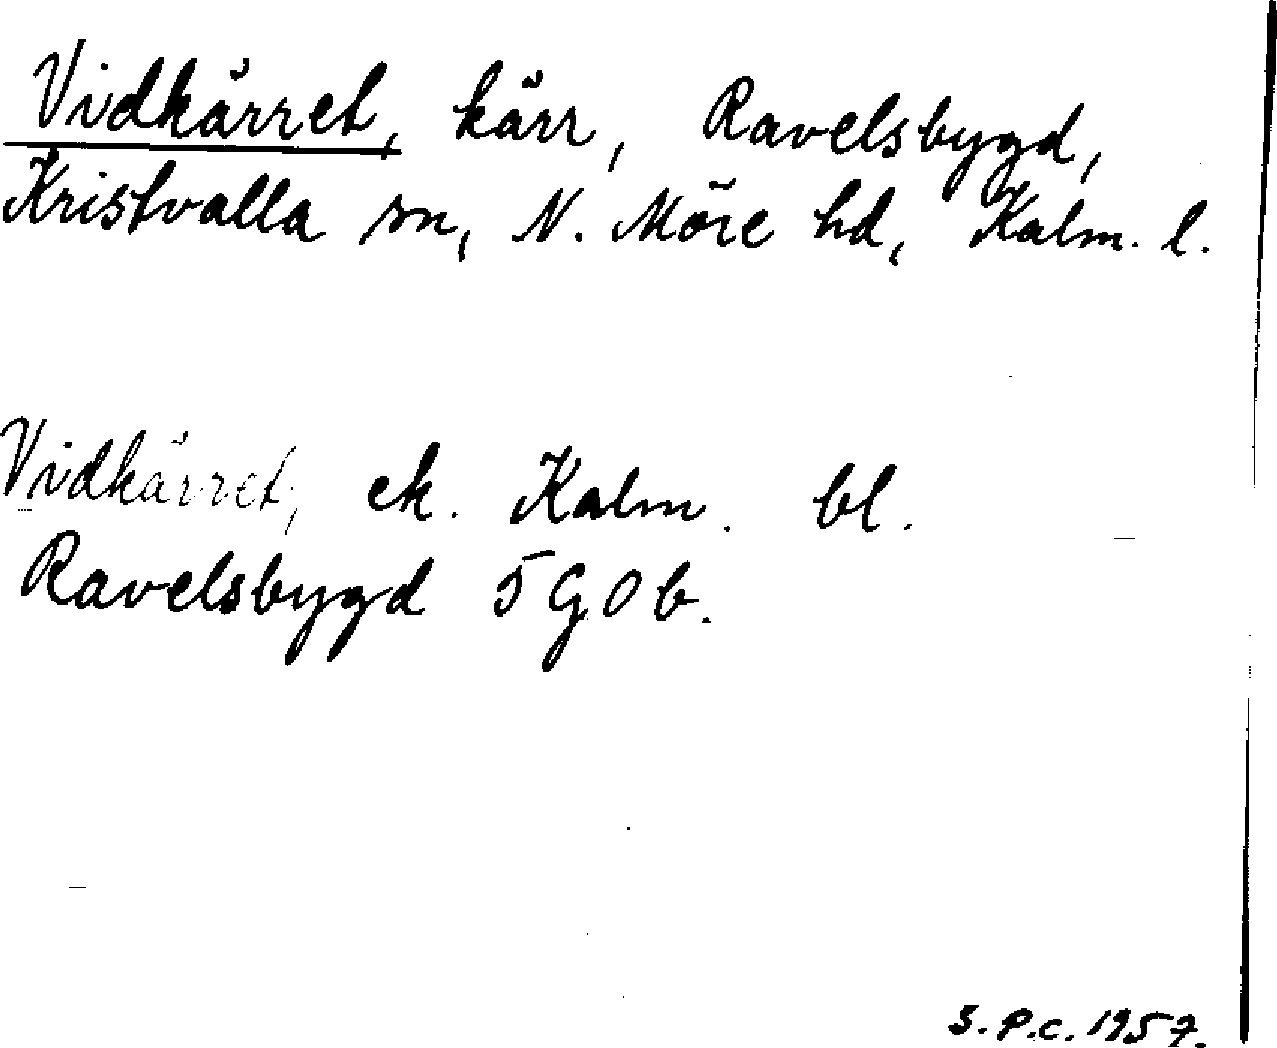 Vidkärret, kärr, Ravelsbygd,
Kristvalla sn, N. Möre hd, Kalm. l.
Vidkärret, ek. Kalm. bl.
Ravelsbygd 5 G 0 b.
S.P.C. 1957.